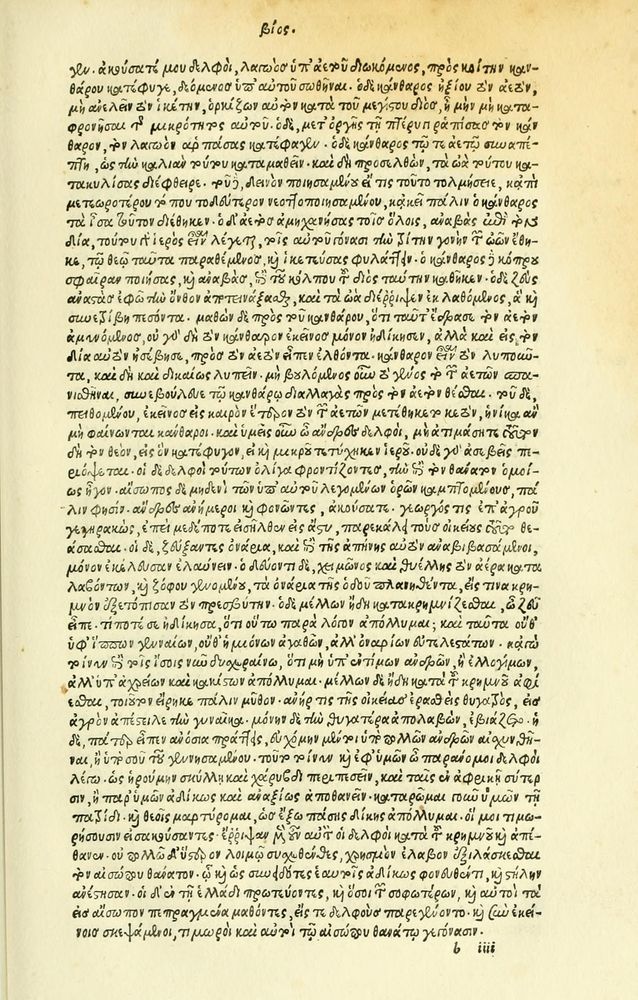 βίος.
γειν. ἀκούσατέ μου δελφοὶ, λαγωὸς ὑπ' ἀετοῦ διωκόμενος, πρὸς κοίτην καν-
θάρου κατέφυγε, δεόμενος ὑπ' αὐτοῦ σωθῆναι. ὁ δὲ κάνθαρος ἠξίου τὸν ἀετὸν,
μὴ ἀνελεῖν τὸν ἱκέτην, ὁρκίζων αὐτὸν κατὰ τοῦ μεγίστου διὸς, ἦ μὴν μὴ κατα-
φρονῆσαι τῆς μικρότητος αὐτοῦ. ὁ δὲ, μετ' ὀργῆς τῇ πτέρυγι ῥαπίσας τὸν κάν-
θαρον, τὸν λαγωὸν ἁρπάσας κατέφαγεν. ὁ δὲ κάνθαρος τῷ τε ἀετῷ συναπέ-
πτη, ὡς τὴν καλιὰν τούτου καταμαθεῖν. καὶ δὴ προσελθὼν, τὰ ὠὰ τούτου κα-
τακυλίσας διέφθειρε. τοῦ δὲ, δεινὸν ποιησαμένου εἴ τις τοῦτο τολμήσειε, κἀπὶ
μετεωροτέρου τόπου τὸ δεύτερον νεοττοποιησαμένου, κἀκεῖ πάλιν ὁ κάνθαρος
τὰ ἴσα τοῦτον διέθηκεν. ὁ δ' ἀετὸς ἀμηχανήσας τοῖς ὅλοις, ἀναβὰς ἐπὶ τὸν
δία, τούτου γὰρ ἱερὸς εἶναι λέγεται, τοῖς αὐτοῦ γόνασι τὴν τρίτην γονὴν τῶν ὠῶν ἔθη-
κε, τῷ θεῷ ταῦτα παραθέμενος, καὶ ἱκετεύσας φυλάττειν. ὁ κάνθαρος δὲ κόπρου
σφαῖραν ποιήσας, καὶ ἀναβὰς, ἐπὶ τοῦ κόλπου τοῦ διὸς ταύτην καθῆκεν. ὁ δὲ ζεὺς
ἀναστὰς ἐφ' ᾧ τὴν ὄνθον ἀποτινάξασθαι, καὶ τὰ ὠὰ διέρριψεν ἐκλαθόμενος, ἃ καὶ
συνετρίβη πεσόντα. μαθὼν δὲ πρὸς τοῦ κανθάρου, ὅτι ταῦτ' ἔδρασε τὸν ἀετὸν
ἀμυνόμενος, οὐ γὰρ δὴ τὸν κάνθαρον ἐκεῖνος μόνον ἠδίκησεν, ἀλλὰ καὶ εἰς τὸν
δία αὐτὸν ἠσέβησε, πρὸς τὸν ἀετὸν εἶπεν ἐλθόντα. κάνθαρον εἶναι τὸν λυποῦν-
τα, καὶ δὴ καὶ δικαίως λυπεῖν. μὴ βουλόμενος οὖν τὸ γένος τὸ τῶν ἀετῶν σπα-
νισθῆναι, συνεβούλευε τῷ κανθάρῳ διαλλαγὰς πρὸς τὸν ἀετὸν θέσθαι. τοῦ δὲ,
πειθομένου, ἐκεῖνος εἰς καιρὸν ἕτερον τὸν τῶν ἀετῶν μετέθηκε τοκετὸν, ἡνίκα ἂν
μὴ φαίνωνται κάνθαροι. καὶ ὑμεῖς οὖν ὦ ἄνδρες δελφοὶ, μὴ ἀτιμάσητε τοῦτον
δὴ τὸν θεὸν, εἰς ὃν κατέφυγον, εἰ καὶ μικροῦ τετύχηκεν ἱεροῦ. οὐδὲ γὰρ ἀσεβεῖς πε-
ριόψεται. οἱ δὲ δελφοὶ τούτων ὀλίγα φροντίζοντες, τὴν ἐπὶ τὸν θάνατον ὁμοί-
ως ἦγον. αἴσωπος δὲ μηδενὶ τῶν ὑπ' αὐτοῦ λεγομένων ὁρῶν καμπτομένους, πά-
λιν φησὶν. ἄνδρες ἀνήμεροι καὶ φονῶντες, ἀκούσατε. γεωργός τις ἐπ' ἀγροῦ
γεγηρακὼς, ἐπεὶ μεδέποτε εἰσῆλθεν εἰς ἄστυ, παρεκάλει τοὺς οἰκείους τοῦτο θε-
άσασθαι. οἱ δὲ, ζεύξαντες ὀνάρια, καὶ ἐπὶ τῆς ἀπήνης αὐτὸν ἀναβιβασάμενοι,
μόνον ἐκέλευσαν ἐλαύνειν. ὁδεύοντι δὲ, χειμῶνος καὶ θυέλλης τὸν ἀέρα κατα
λαβόντων, καὶ ζόφου γενομένου, τὰ ὀνάρια τῆς ὁδοῦ πλανηθέντα, εἴς τινα κρη-
μνὸν ἐξετόπισαν τὸν πρεσβύτην. ὁ δὲ μέλλων ἤδη κατακρημνίζεσθαι, ὦ ζεῦ
εἶπε. τί ποτέ σε ἠδίκησα, ὅτι οὕτω παρὰ λόγον ἀπόλλυμαι. καὶ ταῦτα οὔθ'
ὑφ' ἵππων γενναίων, οὔθ' ἡμιόνων ἀγαθῶν, ἀλλ' ὀναρίων εὐτελεστάτων. κἀγὼ
τοίνυν ἐπὶ τοῖς ἴσοις νῦν δυσχεραίνω, ὅτι μὴ ὑπ' ἐντίμων ἀνδρῶν, ἢ ἐλλογίμων,
ἀλλ' ὑπ' ἀχρείων καὶ κακίστων ἀπόλλυμαι. μέλλων δὲ ἤδη κατὰ τοῦ κρημνοῦ ἀφί
εσθαι, τοιοῦτον εἴρηκε πάλιν μῦθον. ἀνήρ τις τῆς οἰκείας ἐρασθεὶς θυγατρὸς, εἰς
ἀγρὸν ἀπέστειλε τὴν γυναῖκα. μόνην δὲ τὴν θυγατέρα ἀπολαβὼν, ἐβιάζετο. ἡ
δὲ, πάτερ εἶπεν ἀνόσια πράττεις, εὐχόμην μέντοι ὑπὸ πολλῶν ἀνδρῶν αἰσχυνθῆ-
ναι, ἢ ὑπὸ σοῦ τοῦ γεννησαμένου. τοῦτο τοίνυν καὶ ἐφ' ὑμῶν ὦ παράνομοι δελφοὶ
λέγω. ὡς ᾑρούμην σκύλλῃ καὶ χαρύβδει περιπεσεῖν, καὶ ταῖς ἐν ἀφρικῇ σύρτε
σιν, ἢ παρ' ὑμῶν ἀδίκως καὶ ἀναξίως ἀποθανεῖν. καταρῶμαι γοῦν ὑμῶν τῇ
πατρίδι. καὶ θεοὺς μαρτύρομαι, ὡς ἔξω πάσης δίκης ἀπόλλυμαι. οἵ μοι τιμω-
ρήσουσιν εἰσακούσαντες. ἔρριψαν μὲν οὖν αὐτὸν οἱ δελφοὶ κατὰ τοῦ κρημνοῦ καὶ ἀπέ-
θανεν. οὐ πολλῷ δ' ὕστερον λοιμῷ συσχεθέντες, χρησμὸν ἔλαβον ἐξιλάσκεσθαι
τὸν αἰσώπου θάνατον. ᾧ καὶ ὡς συνῄδοτες ἑαυτοῖς ἀδίκως φονευθέντι, καὶ στήλην
ἀνέστησαν. οἱ δ' ἐν τῇ ἑλλάδι πρωτεύοντες, καὶ ὅσοι τῶν σοφωτέρων, καὶ αὐτοὶ τὰ
εἰς αἴσωπον πεπραγμένα μαθόντες, εἴς τε δελφοὺς παρεγένοντο. καὶ σὺν ἐκεί-
νοις σκεψάμενοι, τιμωροὶ καὶ αὐτοὶ τῷ αἰσώπου θανάτῳ γεγόνασιν.
b iiii